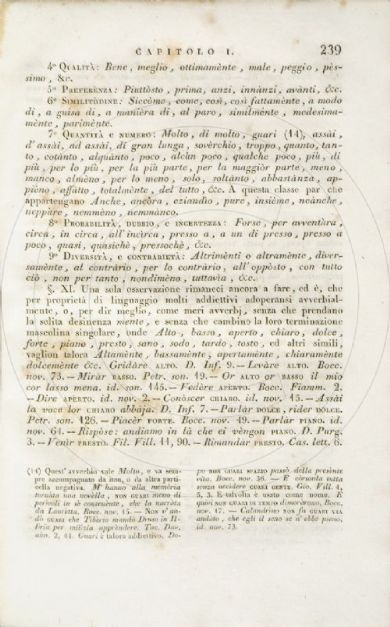 CAPITOLO I. 239
4º QUALITÀ: Bene, meglio, ottimamènte, male, peggio, pès-
simo, &c.
5º PREFERENZA: Piuttòsto, prima, anzi, innànzi, avànti, &c.
6º SIMILITÙDINE: Siccòme, come, così, così fattamènte, a modo
di, a guisa di, a manièra di, al paro, similmènte, medesima-
mènte, parimènte.
7º QUANTITÀ E NUMERO: Molto, di molto, guari (14), assài,
d'assài, ad assài, di gran lunga, sovèrchio, troppo, quanto, tan-
to, cotànto, alquànto, poco, alcùn poco, qualche poco, più, di
più, per lo più, per la più parte, per la maggiòr parte, meno,
manco, almèno, per lo meno, solo, soltànto, abbastànza, ap-
pièno, affàtto, totalmènte, del tutto, &c. A questa classe par che
appartengano Anche, ancòra, eziandìo, pure, insième, neànche,
neppùre, nemmèno, nemmànco.
8º PROBABILITÀ, DUBBIO, E INCERTEZZA: Forse, per avventùra,
circa, in circa, all'incirca, presso a, a un di presso, presso a
poco, quasi, quasichè, pressochè, &c.
9º DIVERSITÀ, E CONTRARIETÀ: Altrimènti o altramènte, diver-
samènte, al contràrio, per lo contràrio, all'oppòsto, con tutto
ciò, non per tanto, nondimèno, tuttavìa, &c.
§. XI. Una sola osservazione rimaneci ancora a fare, ed è, che
per proprietà di linguaggio molti addiettivi adoperansi avverbial-
mente, o, per dir meglio, come meri avverbj, senza che prendano
la solita desinenza mente, e senza che cambino la loro terminazione
mascolina singolare; onde Alto, basso, aperto, chiaro, dolce,
forte, piano, presto, sano, sodo, tardo, tosto, ed altri simili
vaglion taloca Altamènte, bassamènte, apertamènte, chiaramènte
dolcemènte &c. Gridàre ALTO. D. Inf. 9. — Levàre ALTO. Bocc.
nov. 73. — Miràr BASSO. Petr. son. 19. — Or ALTO or BASSO il mio
cor lasso mena. id. son. 145. — Vedère APERTO. Bocc. Fiamm. 2.
— Dire APERTO. id. nov. 2. — Conòscer CHIARO. id. nov. 15. — Assài
la voce lor CHIARO abbaja. D. Inf. 7. — Parlàr DOLCE, rider DOLCE.
Petr. son. 126. — Piacèr FORTE. Bocc. nov. 49. — Parlàr PIANO. id.
nov. 64. — Rispòse: andiamo in là che ei vengon PIANO. D. Purg.
3. — Venir PRESTO. Fil. Vill. 11, 90. — Rimandàr PRESTO. Cas. lett. 6.
(14) Quest' avverbio vale Molto, e va sem-
pre accompagnato da non, o da altra parti-
cella negativa. M'hanno alla memòria
tornàta una novèlla, NON GUARI meno di
perìcoli in sè contenènte, che la narràta
da Laurètta. Bocc. nov. 15. — NON v'an-
dò GUARI che Tibèrio mandò Druso in Il-
lìria per milìzia apprèndere. Tac. Dav.
ann. 2, 44. Guari è talora addiettivo. Do-
po NON GUARI SPAZIO passò della presènte
vita. Bocc. nov. 36. — E còrsonla tutta
senza uccìdere GUARI GENTE. Gio. Vill. 4,
5, 3. E talvolta è usato come nome. E
quòi NON GUARI DI TEMPO dimoràrono. Bocc.
nov. 17. — Calandrìno NON fu GUARI via
andàto, che egli il seno se n'ebbe pieno.
id. nov. 73.